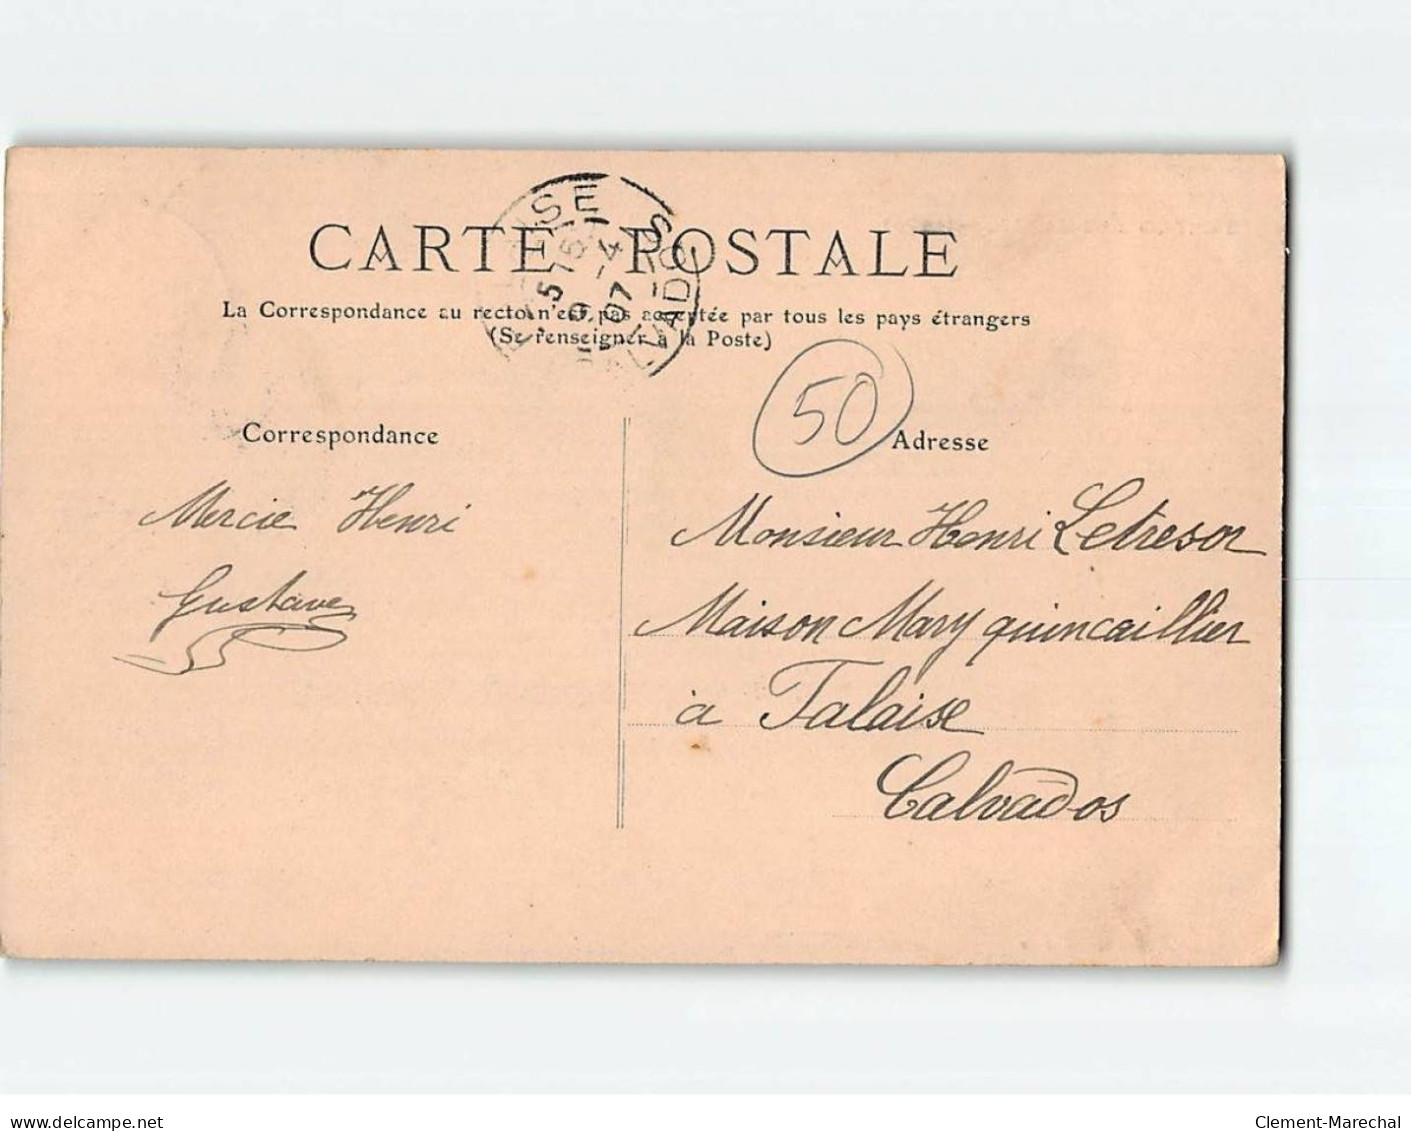 CARTE POSTALE
La Correspondance au recto n'est pas acceptée par tous les pays étrangers
(Se renseigner à la Poste)
FALAISE
CALVADOS
5
15
4
07
50
Correspondance
Mercie Henri
Gustave
Adresse
Monsieur Henri Letresor
Maison Mary quincaillier
à Falaise
Calvados
www.delcampe.net
Clement-Marechal